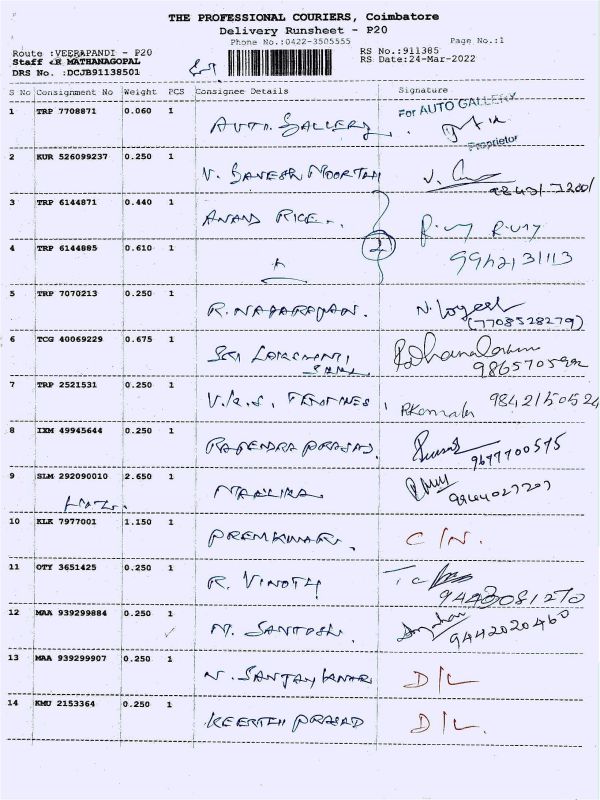 THE PROFESSIONAL COURIERS, Coimbatore
Delivery Runsheet - P20
Phone No.:0422-3505555
Page No.:1
Route :VEERAPANDI - P20
RS No.:911385
Staff : MATHANAGOPAL
RS Date:24-Mar-2022
DRS No. :DCJB91138501
S No Consignment No Weight PCS Consignee Details Signature
1 TRP 7708871 0.060 1 AUTO GALLERY. For AUTO GALLERY
Proprietor
2 KUR 526099237 0.250 1 V. GANESH MOORTHY
3 TRP 6144871 0.440 1 ANAND RICE
4 TRP 6144885 0.610 1 2 9942131113
5 TRP 7070213 0.250 1 R. NAPARAJAN. N. Logesh
(7708528279)
6 TCG 40069229 0.675 1 SRI LAKSHMI
9865705992
7 TRP 2521531 0.250 1 9842150524
8 IXM 49945644 0.250 1 RAJENDRA PRASAD.
9677700575
9 SLM 292090010 2.650 1
10 KLK 7977001 1.150 1 PREMKUMAR. C/N.
11 OTY 3651425 0.250 1 R. VINOTH
9443081270
12 MAA 939299884 0.250 1 M. SANTOSH.
9442020460
13 MAA 939299907 0.250 1 N. SANJAY KUMAR D/L
14 KMU 2153364 0.250 1 KEERTHI PRASAD D/L.